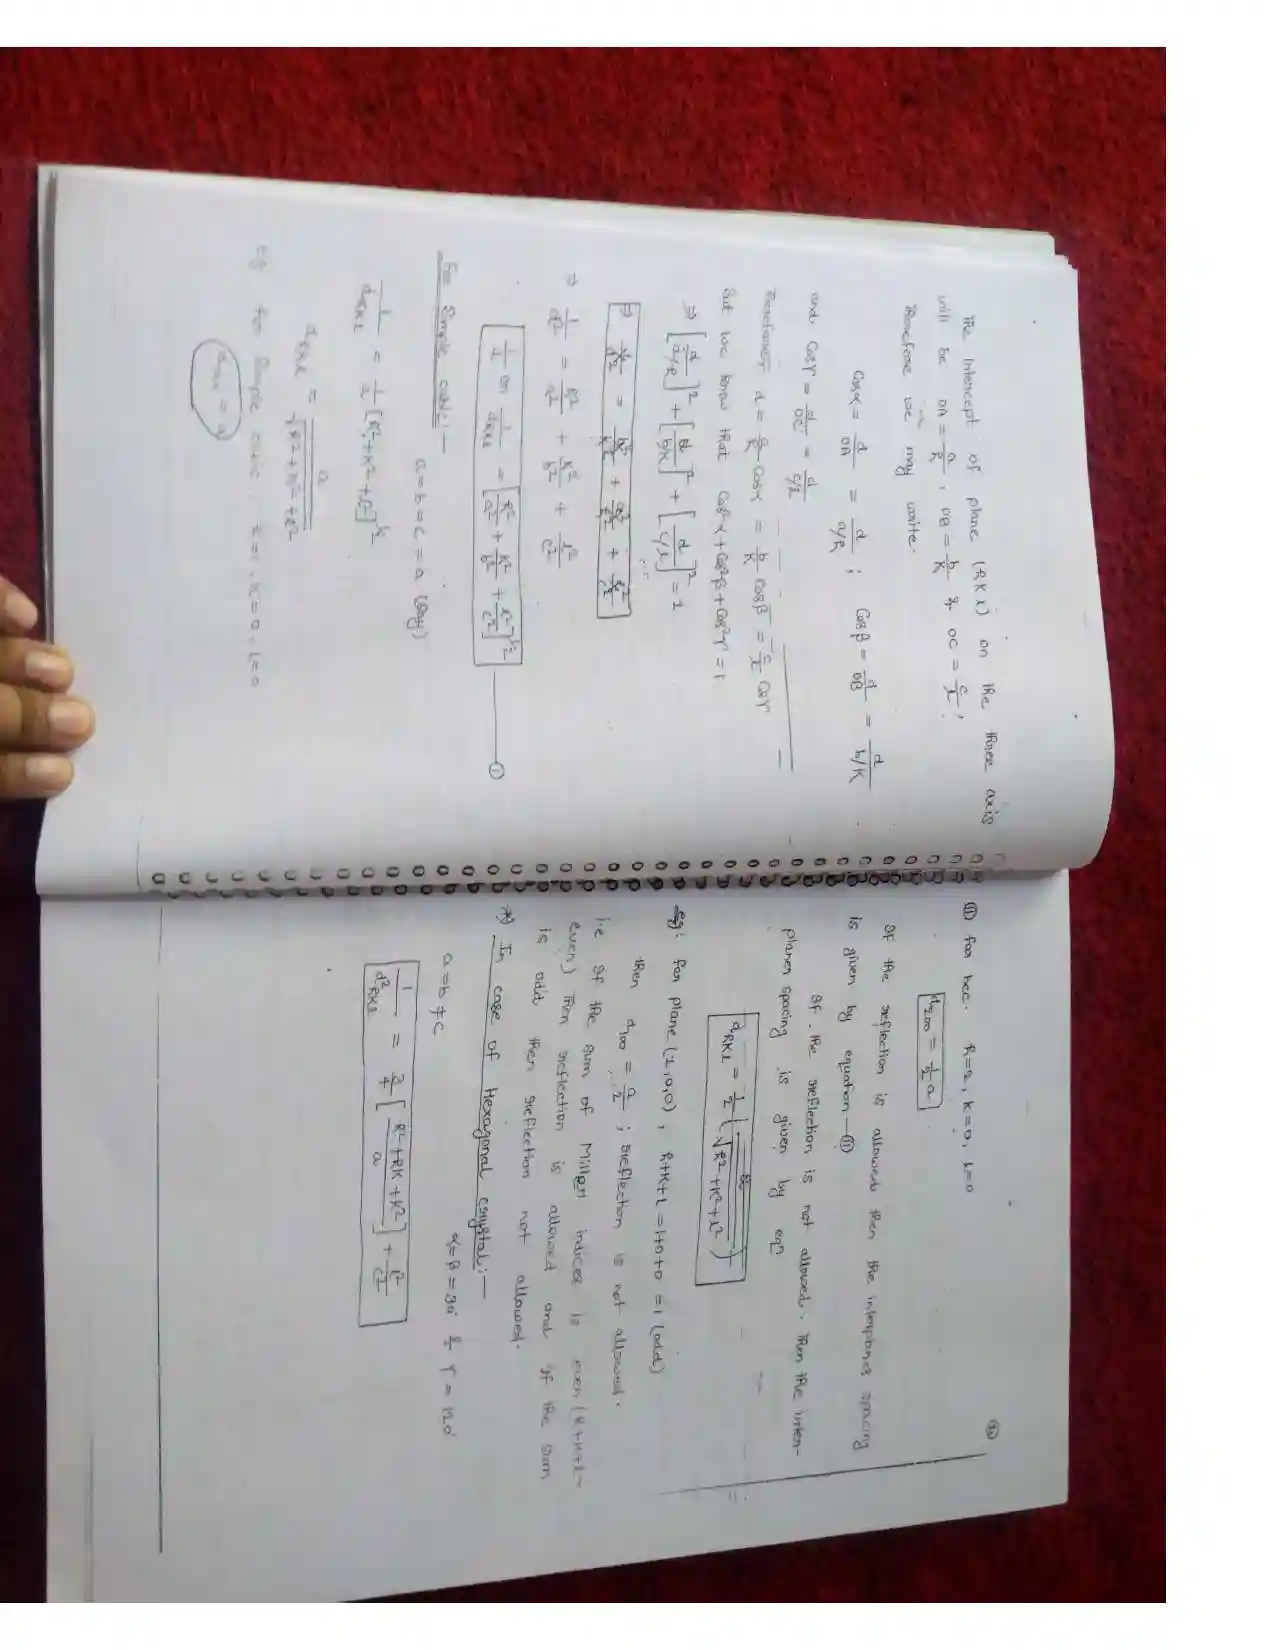 The intercept of plane (h k l) on the three axis
will be OA = a/h, OB = b/k & OC = c/l,
Therefore we may write.
cosα = d/OA = d/a/h ; cosβ = d/OB = d/b/k
and cosγ = d/OC = d/c/l
Therefore d = a/h cosα = b/k cosβ = c/l cosγ
But we know that cos²α + cos²β + cos²γ = 1
⇒ [d/a/h]² + [d/b/k]² + [d/c/l]² = 1
⇒ 1/d² = h²/a² + k²/b² + l²/c²
1/d or 1/dhkl = [h²/a² + k²/b² + l²/c²]^1/2 —①
For Simple cubic:—
a = b = c = a (say)
1/dhkl = 1/a [h² + k² + l²]^1/2
dhkl = a/√h² + k² + l²
eg for Simple cubic, k=0, l=0
⑪ for bcc. h=2, k=0, l=0
d200 = 1/2 a
If the reflection is allowed then the interplaner spacing
is given by equation—⑪
If the reflection is not allowed, then the inter-
planer spacing is given by eqn
dhkl = 1/2 (a/√h² + k² + l²)
eg: for plane (1,0,0), h+k+l = 1+0+0 = 1 (odd)
then d100 = a/2 ; reflection is not allowed.
i.e If the sum of Miller indices is even (h+k+l=
even) then reflection is allowed and if the sum
is odd then reflection not allowed.
*) In case of Hexagonal crystal:—
a = b ≠ c α = β = 90° & γ = 120°
1/d²hkl = [h² + hk + k²/a] + l²/c²